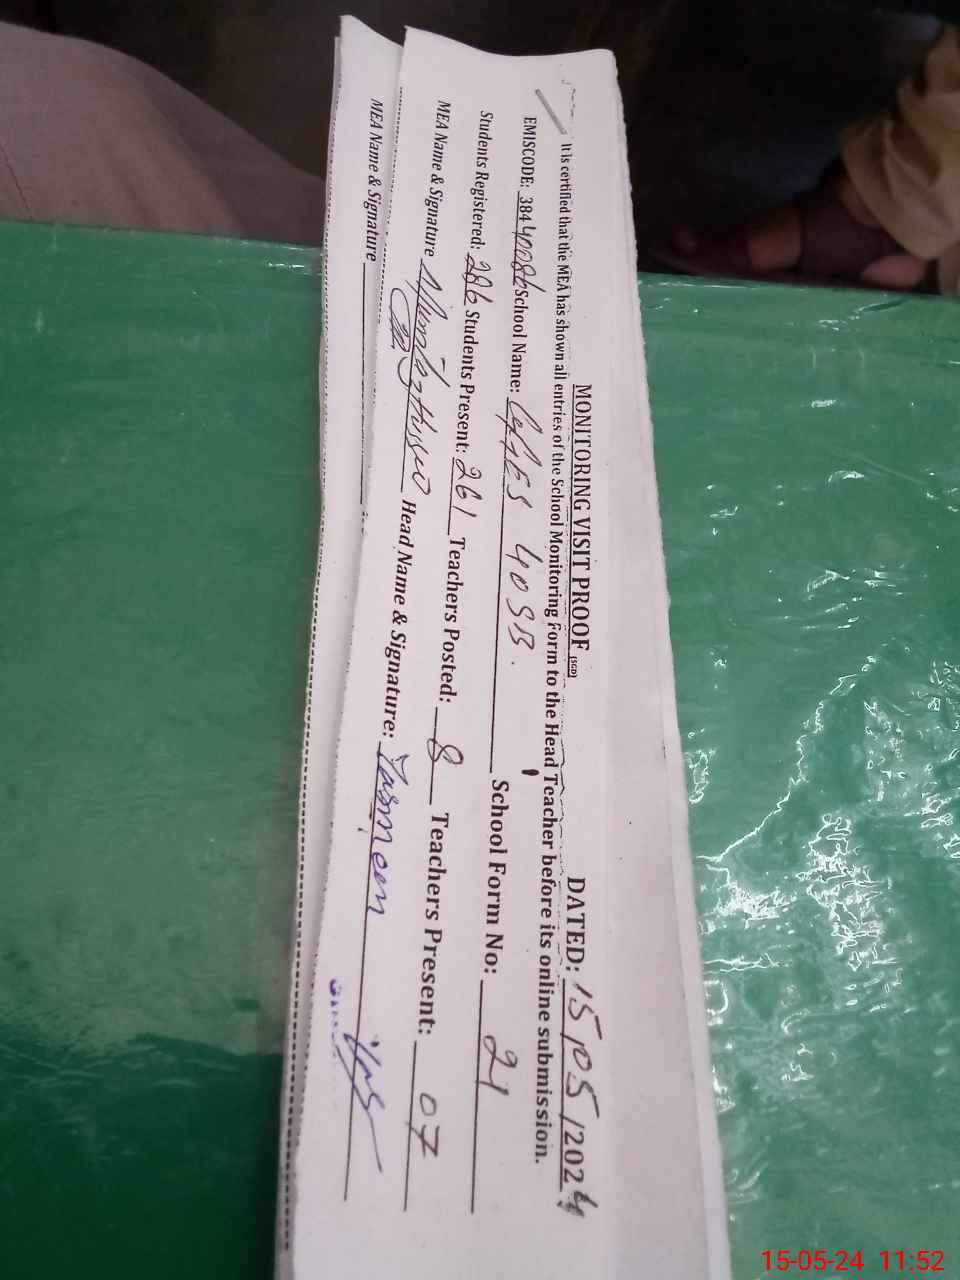 MONITORING VISIT PROOF (SGD) DATED: 15/05/2024
It is certified that the MEA has shown all entries of the School Monitoring Form to the Head Teacher before its online submission.
EMISCODE: 38440086 School Name: GGES 40 SB. School Form No: 21
Students Registered: 286 Students Present: 261 Teachers Posted: 8 Teachers Present: 07
MEA Name & Signature Head Name & Signature: Yasmeen
MEA Name & Signature
15-05-24 11:52